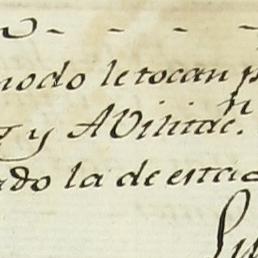 modo le tocan p
y Avilitac.n
ado la de estac
Lu